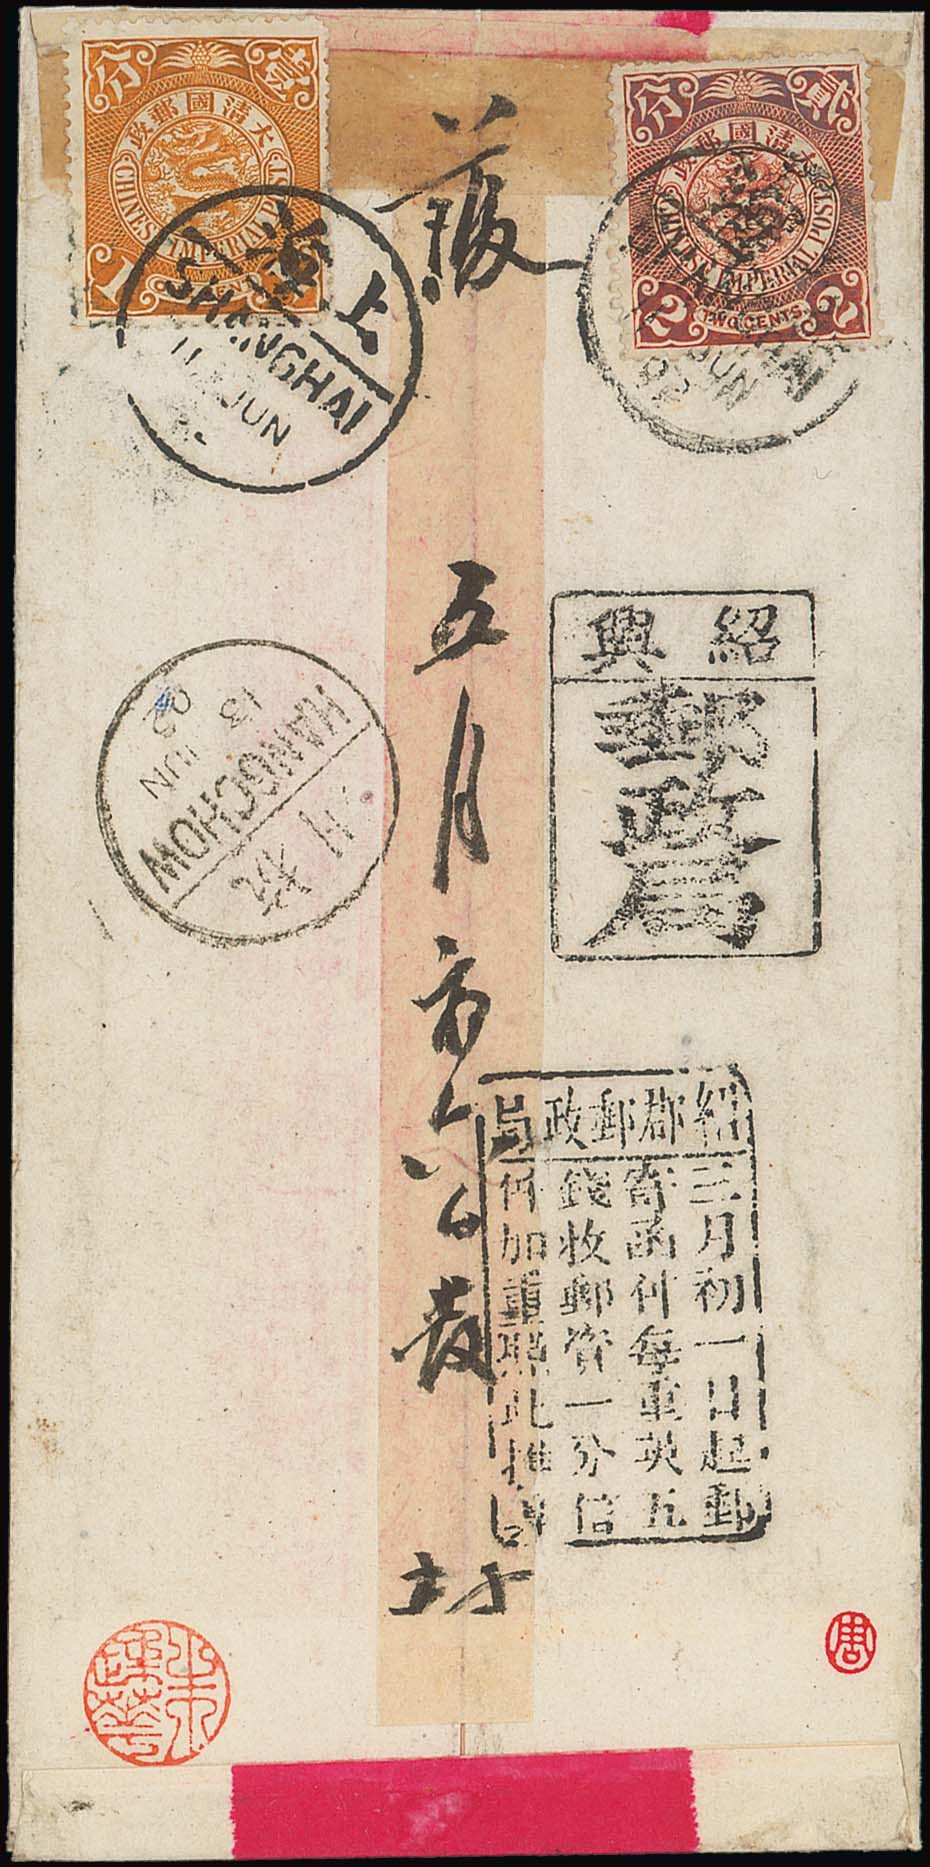 壹分
大清國郵政
CHINESE IMPERIAL POST
1
貳分
大清國郵政
CHINESE IMPERIAL POST
2 TWO CENTS. 2
上海
SHANGHAI
11 JUN
JUN
護
五月
六
公
發
紹興
郵政局
杭州
HANGCHOW
13 JUN 02
紹郡郵政局
三月初一日起郵
寄函件每重英五
錢收郵資一分信
件加重照此推
周
朱